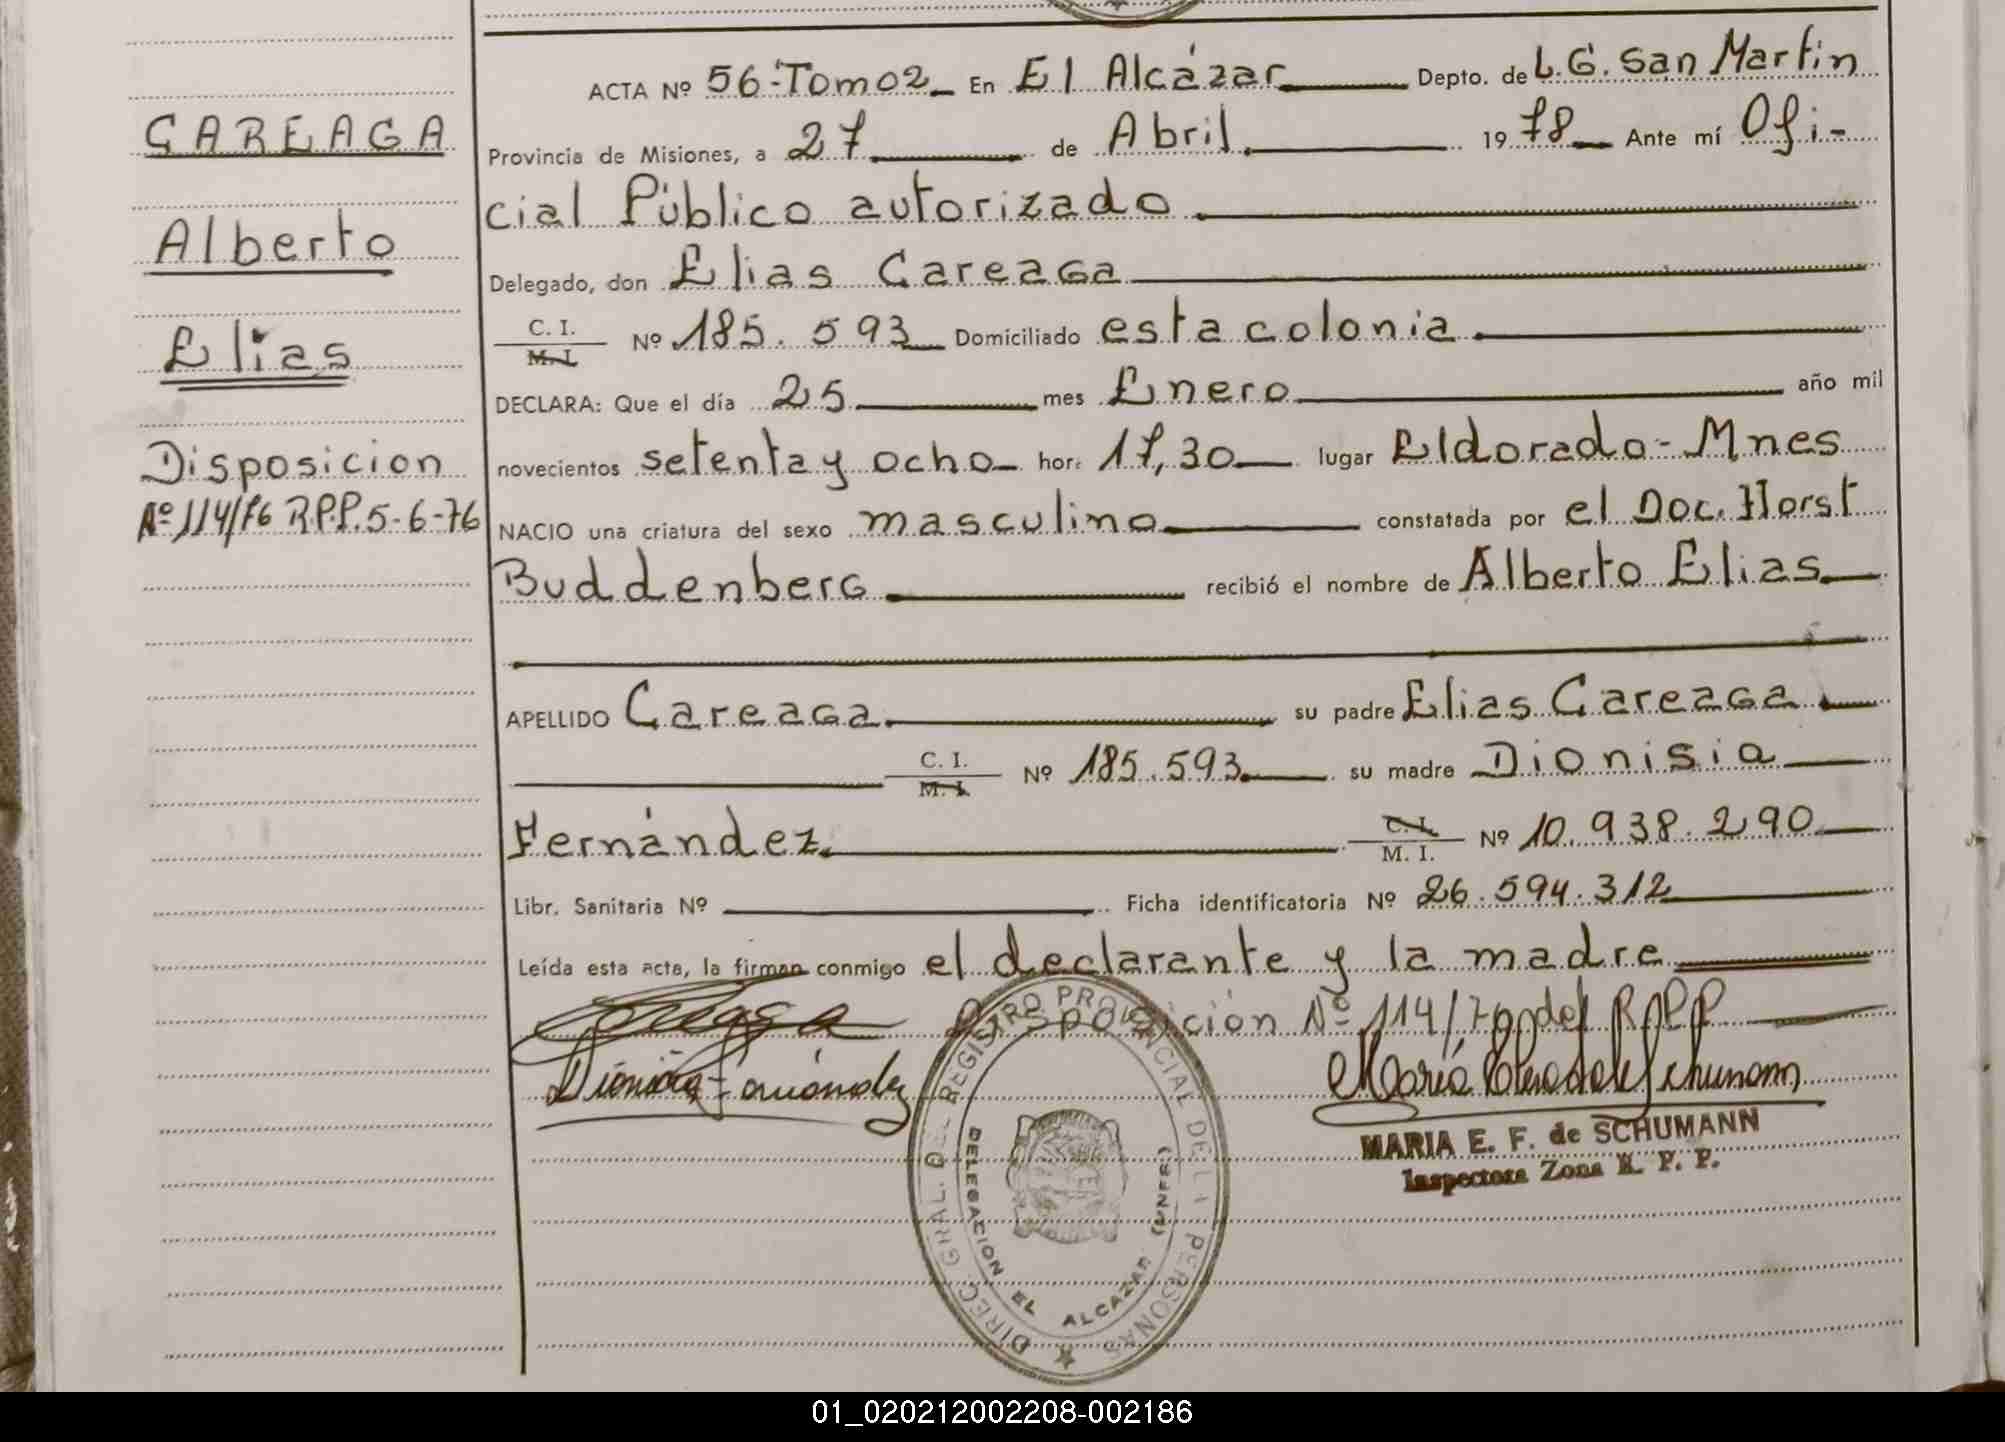 CAREAGA
Alberto
Elias
Disposicion
Nº 114/76 R.P.P. 5-6-76
ACTA Nº 56-Tomo 2 En El Alcázar Depto. de L.G. San Martín
Provincia de Misiones, a 27 de Abril 1978 Ante mí Ofi-
cial Público autorizado
Delegado, don Elias Careaga
C. I.
M. I. Nº 185.593 Domiciliado esta colonia
DECLARA: Que el día 25 mes Enero año mil
novecientos setenta y ocho hora 17,30 lugar Eldorado-Mnes
NACIO una criatura del sexo masculino constatada por el Doc. Horst
Buddenberg recibió el nombre de Alberto Elias
APELLIDO Careaga su padre Elias Careaga
C. I.
M. I. Nº 185.593 su madre Dionisia
Fernández C. I.
M. I. Nº 10.938.290
Libr. Sanitaria Nº Ficha identificatoria Nº 26.594.312
Leída esta acta, la firman conmigo el declarante y la madre
Careaga Disposición Nº 114/76 del R.P.P
Dionisia Fernández
MARIA E. F. de SCHUMANN
Inspectora Zona R. P. P.
DIREC. GRAL. DEL REGISTRO PROVINCIAL DE L PERSONAS
DELEGACION EL ALCAZAR (MNES)
01_020212002208-002186